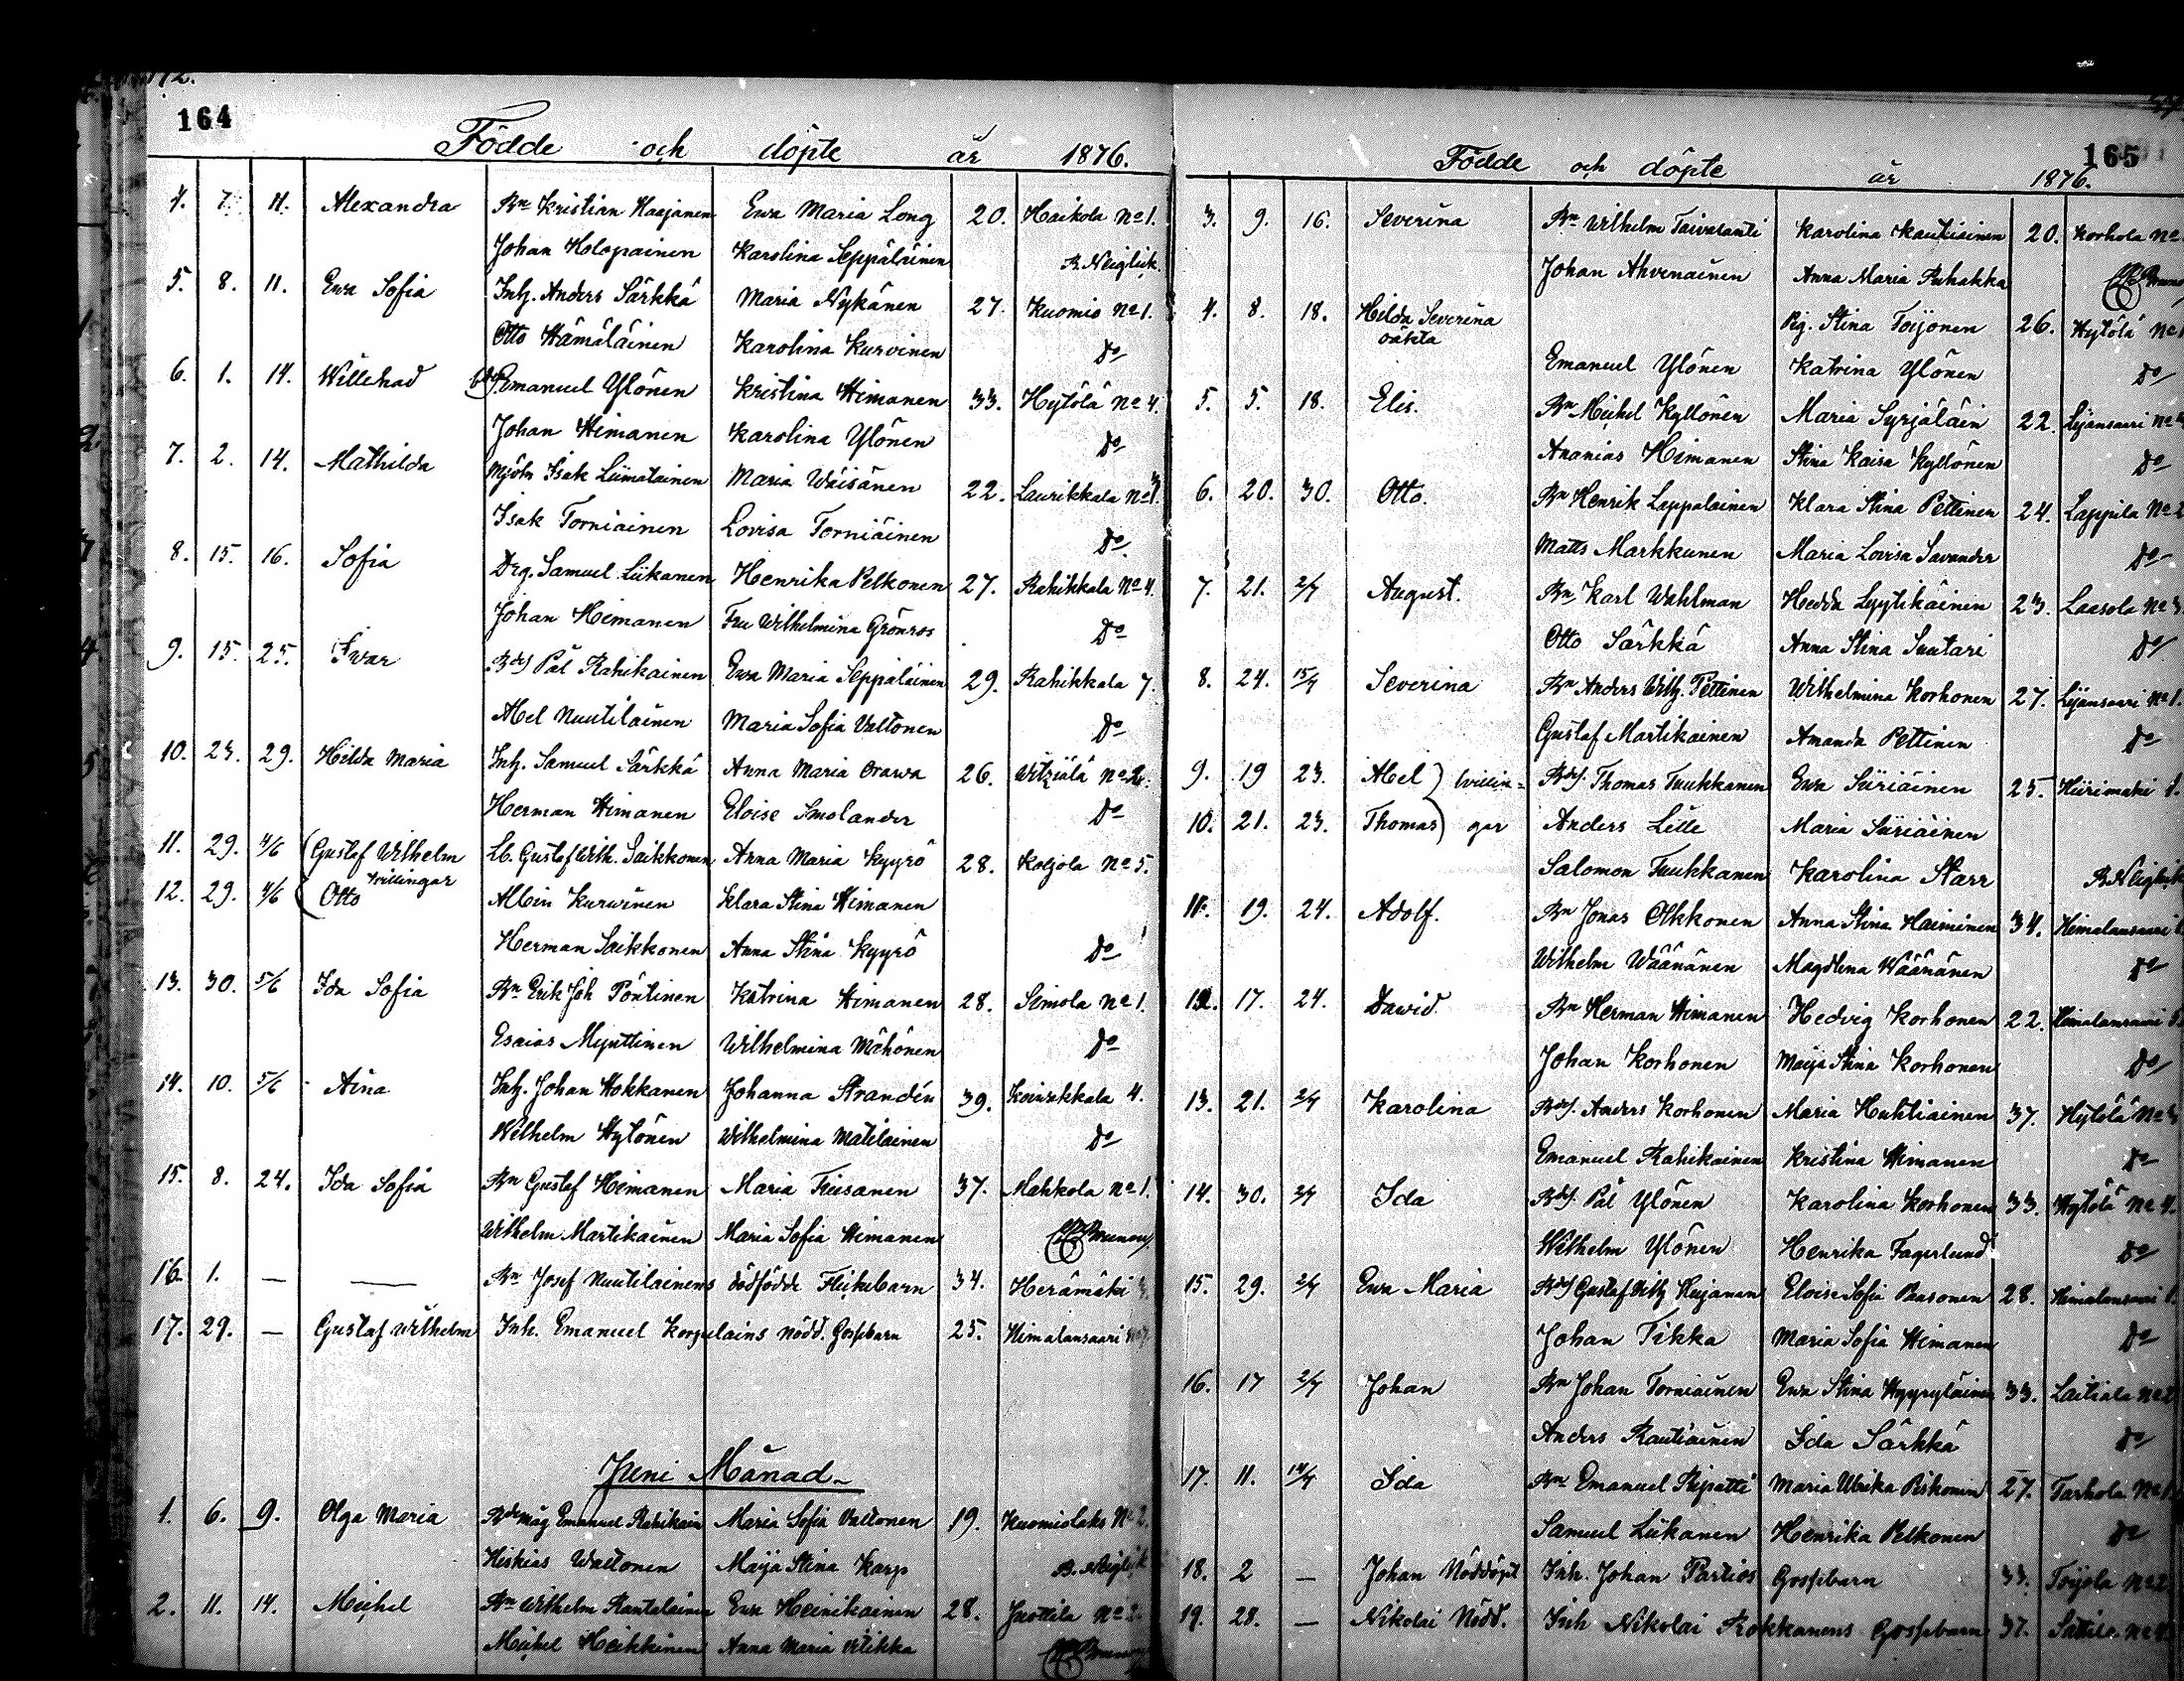 164
Födde och döpte år 1876.
4. 7. 11. Alexandra Bn Kristian Haajanen Ewa Maria Long 20. Haikola No 1.
Johan Holopainen Karolina Seppäläinen B. Neiglick.
5. 8. 11. Ewa Sofia Inh. Anders Särkkä Maria Nykänen 27. Kuomio No 1.
Otto Hämäläinen Karolina Kurvinen Do
6. 1. 14. Willehad Emanuel Ylönen Kristina Himanen 33. Hytölä No 4.
Johan Himanen Karolina Ylönen Do
7. 2. 14. Mathilda Mjöln Isak Liimatainen Maria Wäisänen 22. Laurikkala
Isak Torniainen Lovisa Torniäinen Do
8. 15. 16. Sofia Drg. Samuel Liikanen Henrika Pelkonen 27. Rahikkala No 4.
Johan Heimanen Fru Wilhelmina Grönros Do
9. 15. 25. Ivar Bds Pål Rahikainen Ewa Maria Seppäläinen 29. Rahikkala 7.
Abel Nuutilainen Maria Sofia Valtonen Do
10. 23. 29. Hilda Maria Inh. Samuel Särkkä Anna Maria Orawa 26. Witsiälä No 2.
Herman Himanen Eloise Smolander Do
11. 29. 4/6 Gustaf Wilhelm Lb. Gustaf Wilh. Saikkonen Anna Maria Kyyrö 28. Koljola No 5.
tvillingar
12. 29. 4/6 Otto Albin Kurwinen Klara Stina Himanen
Herman Saikkonen Anna Stina Kyyrö Do
13. 30. 5/6 Ida Sofia Bn Erik Joh Pöntinen Katrina Himanen 28. Simola No 1.
Esaias Mynttinen Wilhelmina Mähönen Do
14. 10. 5/6 Aina Inh. Johan Hokkanen Johanna Strandén 39. Koirakkala 4.
Wilhelm Hytönen Wilhelmina Matilainen Do
15. 8. 24. Ida Sofia Bn Gustaf Heimanen Maria Tiusanen 37. Mahkola No 1.
Wilhelm Martikainen Maria Sofia Himanen
16. 1. — — Bn Josef Nuutilainens dödfödde Flickebarn 34. Herämäki
17. 29. — Gustaf Wilhelm Inh. Emanuel Korpelains nödd. Gossbarn 25. Himalansaari
Juni Månad
1. 6. 9. Olga Maria Bdemåg Emanuel Rahikain Maria Sofia Valtonen 19. Kuomiolaks No 2.
Hiskias Waltonen Maija Stina Karp B. Neiglick
2. 11. 14. Michel Bn Wilhelm Rantalainen Ewa Heinikainen 28. Juottila No 2.
Michel Heikkinen Anna Maria Wilikka
165
Födde och döpte år 1876.
3. 9. 16. Severina Bn Wilhelm Taivalanti Karolina Kautiainen 20. Korhola No
Johan Ahvenainen Anna Maria Puhakka
4. 8. 18. Hilda Severina Pig. Stina Toijonen 26. Hytölä No
oäkta
Emanuel Ylönen Katrina Ylönen Do
5. 5. 18. Elis. Bn Michel Kyllönen Maria Syrjäläin 22. Lijansaari No
Ananias Himanen Stina Kaisa Kyllönen Do
6. 20. 30. Otto. Bn Henrik Lappalainen Klara Stina Pettinen 24. Lappila No 2
Matts Markkunen Maria Lovisa Savander Do
7. 21. 2/7 August. Bn Karl Wahlman Hedda Lyytikäinen 23. Laasola No
Otto Särkkä Anna Stina Suutari Do
8. 24. 15/7 Severina Bn Anders Wilh. Pettinen Wilhelmina Korhonen 27. Lijansaari No 1.
Gustaf Martikainen Amanda Pettinen Do
9. 19 23. Abel tvillin- Bds. Thomas Tuukkanen Ewa Siiriäinen 25. Hiirimäki
10. 21. 23. Thomas gar Anders Lille Maria Siiriäinen
Salomon Tuukkanen Karolina Starr B. Neiglick
11. 19. 24. Adolf. Bn Jonas Olkkonen Anna Stina Haiminen 34. Himalansaari
Wilhelm Wäänänen Magdlena Wäänänen Do
12. 17. 24. Dawid. Bn Herman Himanen Hedvig Korhonen 22. Himalansaari
Johan Korhonen Maija Stina Korhonen Do
13. 21. 2/7 Karolina Bds. Anders Korhonen Maria Huhtiainen 37. Hytölä No
Emanuel Rahikainen Kristina Himanen Do
14. 30. 2/7 Ida Bds. Pål Ylönen Karolina Korhonen 33. Hytölä No 4.
Wilhelm Ylönen Henrika Fagerlund Do
15. 29. 2/7 Ewa Maria Bds Gustaf Wilh Heijanen Eloise Sofia Paasonen 28. Himalansaari
Johan Tikka Maria Sofia Himanen Do
16. 17 2/7 Johan Bn Johan Torniainen Ewa Stina Hyyryläinen 33. Laitiala No
Anders Rautiainen Ida Särkkä Do
17. 11. Ida Bn Emanuel Ripatti Maria Ulrika Piskonen 27. Tarhola No
Samuel Liikanen Henrika Pelkonen Do
18. 2 — Johan Nöddöpt Inh. Johan Partios Gossbarn 33. Toijola No 2
19. 28. — Nikolai Nödd. Inh Nikolai Rokkanens Gossbarn 37. Sattila No